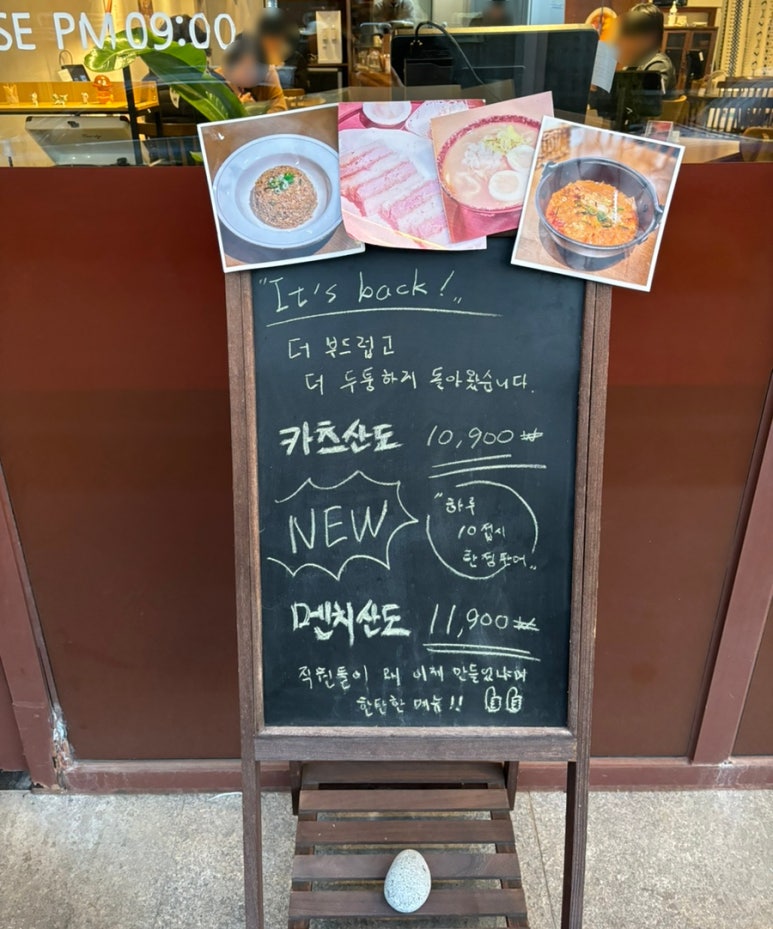 SE PM 09:00
"It's back!„
더 부드럽고
더 두툼하게 돌아왔습니다.
카츠산도 10,900₩
NEW
"하루
10접시
한정판매„
멘치산도 11,900₩
직원들이 왜 이제 만들었냐며
한탄한 메뉴!!